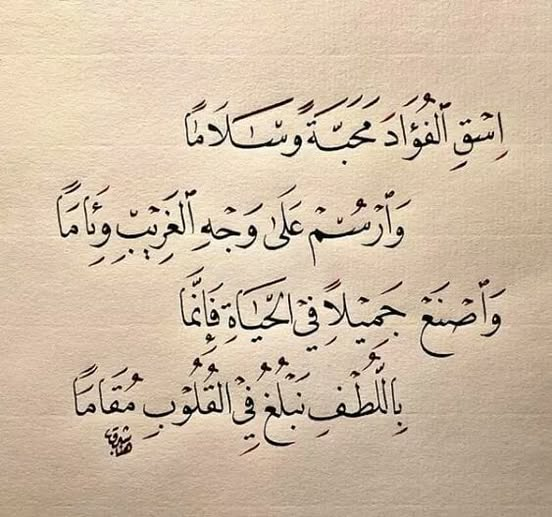 اِسْقِ ٱلْفُؤَادَ مَحَبَّةً وَسَلَامًا
وَٱرْسُمْ عَلَىٰ وَجْهِ ٱلْغَرِيْبِ وِئَامَا
وَٱصْنَعْ جَمِيْلًا فِي الْحَيَاةِ فَإِنَّمَا
بِاللُّطْفِ نَبْلُغُ فِي الْقُلُوْبِ مُقَامَا